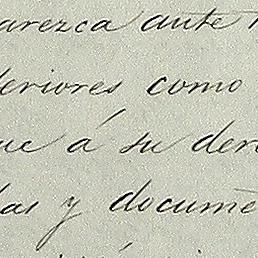 arezca ante
deriores como
ue á su der
das y docume